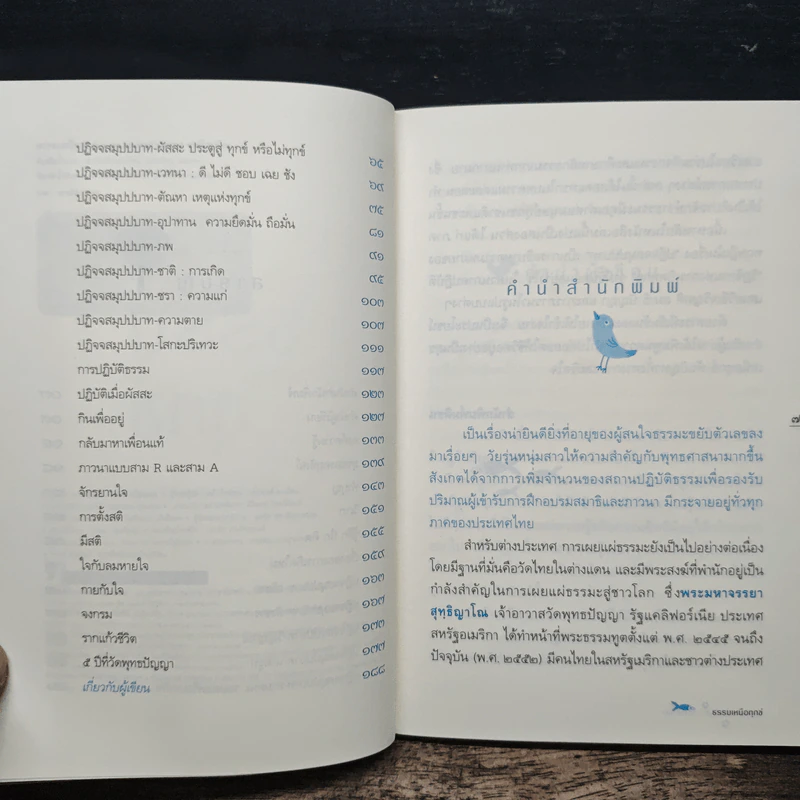 ปฏิจจสมุปปบาท-ผัสสะ ประตูสู่ ทุกข์ หรือไม่ทุกข์ ๖๕
ปฏิจจสมุปปบาท-เวทนา : ดี ไม่ดี ชอบ เฉย ชัง ๖๙
ปฏิจจสมุปปบาท-ตัณหา เหตุแห่งทุกข์ ๗๕
ปฏิจจสมุปปบาท-อุปาทาน ความยึดมั่น ถือมั่น ๘๑
ปฏิจจสมุปปบาท-ภพ ๙๑
ปฏิจจสมุปปบาท-ชาติ : การเกิด ๙๕
ปฏิจจสมุปปบาท-ชรา : ความแก่ ๑๐๓
ปฏิจจสมุปปบาท-ความตาย ๑๐๗
ปฏิจจสมุปปบาท-โสกะปริเทวะ ๑๑๑
การปฏิบัติธรรม ๑๑๗
ปฏิบัติเมื่อผัสสะ ๑๒๓
กินเพื่ออยู่ ๑๒๗
กลับมาหาเพื่อนแท้ ๑๓๓
ภาวนาแบบสาม R และสาม A ๑๓๙
จักรยานใจ ๑๔๓
การตั้งสติ ๑๕๑
มีสติ ๑๕๕
ใจกับลมหายใจ ๑๕๙
กายกับใจ ๑๖๓
จงกรม ๑๖๗
รากแก้วชีวิต ๑๗๓
๕ ปีที่วัดพุทธปัญญา ๑๗๗
เกี่ยวกับผู้เขียน ๑๘๘
คำนำสำนักพิมพ์
๗
เป็นเรื่องน่ายินดียิ่งที่อายุของผู้สนใจธรรมะขยับตัวเลขลง
มาเรื่อยๆ วัยรุ่นหนุ่มสาวให้ความสำคัญกับพุทธศาสนามากขึ้น
สังเกตได้จากการเพิ่มจำนวนของสถานปฏิบัติธรรมเพื่อรองรับ
ปริมาณผู้เข้ารับการฝึกอบรมสมาธิและภาวนา มีกระจายอยู่ทั่วทุก
ภาคของประเทศไทย
สำหรับต่างประเทศ การเผยแผ่ธรรมะยังเป็นไปอย่างต่อเนื่อง
โดยมีฐานที่มั่นคือวัดไทยในต่างแดน และมีพระสงฆ์ที่พำนักอยู่เป็น
กำลังสำคัญในการเผยแผ่ธรรมะสู่ชาวโลก ซึ่งพระมหาจรรยา
สุทฺธิญาโณ เจ้าอาวาสวัดพุทธปัญญา รัฐแคลิฟอร์เนีย ประเทศ
สหรัฐอเมริกา ได้ทำหน้าที่พระธรรมทูตตั้งแต่ พ.ศ. ๒๕๔๕ จนถึง
ปัจจุบัน (พ.ศ. ๒๕๕๒) มีคนไทยในสหรัฐอเมริกาและชาวต่างประเทศ
ธรรมเหนือทุกข์